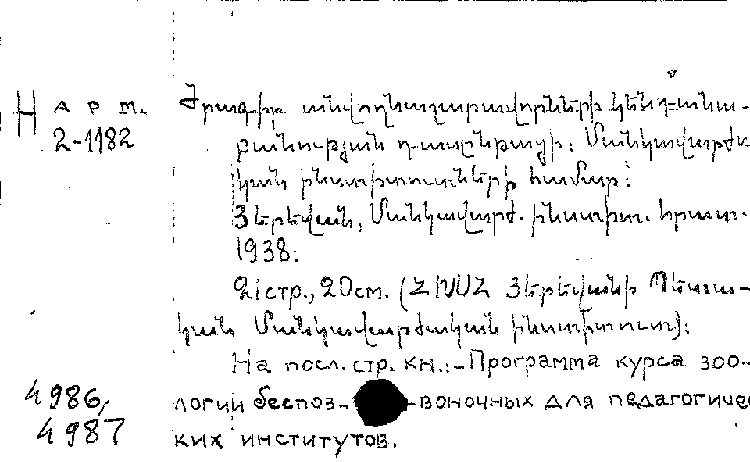 Н арм. Ծրագիր անվողնաշարավորների կենդանա-
2-1182 բանության դասընթացի: Մանկավարժա
կան ինստիտուտների համար:
Յերեվան, Մանկավարժ. ինստիտ. հրատ.
1938.
21стр., 20см. (ՀԽՍՀ Յերեվանի Պետա-
կան Մանկավարժական ինստիտուտ):
На посл. стр. кн.:-Программа курса зоо-
4986, логии беспоз- -воночных для педагогичес
4987 ких институтов.